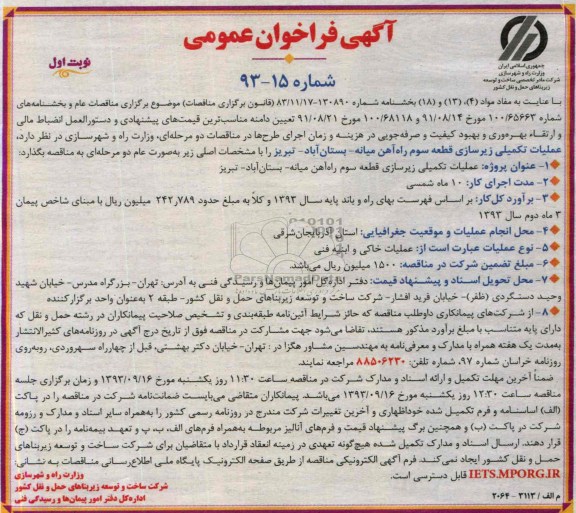 آگهی فراخوان عمومی
شماره ۱۵-۹۳
نوبت اول
جمهوری اسلامی ایران
وزارت راه و شهرسازی
شرکت مادر تخصصی ساخت و توسعه
زیربناهای حمل و نقل کشور
با عنایت به مفاد مواد (۴)، (۱۳) و (۱۸) بخشنامه شماره ۱۳۰۸۹۰-۸۳/۱۱/۱۷ (قانون برگزاری مناقصات) موضوع برگزاری مناقصات عام و بخشنامه‌های
شماره ۱۰۰/۶۵۶۶۳ مورخ ۹۱/۰۸/۱۴ و ۱۰۰/۶۸۱۱۸ مورخ ۹۱/۰۸/۲۱ تعیین دامنه مناسب‌ترین قیمت‌های پیشنهادی و دستورالعمل انضباط مالی
و ارتقاء بهره‌وری و بهبود کیفیت و صرفه‌جویی در هزینه و زمان اجرای طرح‌ها در مناقصات دو مرحله‌ای، وزارت راه و شهرسازی در نظر دارد،
عملیات تکمیلی زیرسازی قطعه سوم راه‌آهن میانه- بستان‌آباد- تبریز را با مشخصات اصلی زیر به‌صورت عام دو مرحله‌ای به مناقصه بگذارد:
۱- عنوان پروژه: عملیات تکمیلی زیرسازی قطعه سوم راه‌آهن میانه- بستان‌آباد- تبریز
۲- مدت اجرای کار: ۱۰ ماه شمسی
۳- برآورد کل‌کار: بر اساس فهرست بهای راه و باند پایه سال ۱۳۹۳ و کلاً به مبلغ حدود ۲۴۲,۷۸۹ میلیون ریال با مبنای شاخص پیمان
۳ ماه دوم سال ۱۳۹۳
۴- محل انجام عملیات و موقعیت جغرافیایی: استان آذربایجان‌شرقی
۵- نوع عملیات عبارت است از: عملیات خاکی و ابنیه فنی
۶- مبلغ تضمین شرکت در مناقصه: ۱۵۰۰ میلیون ریال می‌باشد.
۷- محل تحویل اسناد و پیشنهاد قیمت: دفتر اداره‌کل امور پیمان‌ها و رسیدگی فنی به آدرس: تهران- بزرگراه مدرس- خیابان شهید
وحید دستگردی (ظفر)- خیابان فرید افشار- شرکت ساخت و توسعه زیربناهای حمل و نقل کشور- طبقه ۲ به‌عنوان واحد برگزارکننده
۸- از شرکت‌های پیمانکاری داوطلب مناقصه که حائز شرایط آئین‌نامه طبقه‌بندی و تشخیص صلاحیت پیمانکاران در رشته حمل و نقل که
دارای پایه متناسب با مبلغ برآورد مذکور هستند، تقاضا می‌شود جهت مشارکت در مناقصه فوق از تاریخ درج آگهی در روزنامه‌های کثیرالانتشار
به‌مدت یک هفته همراه با مدارک و معرفی‌نامه به مهندسین مشاور هگزا در : تهران- خیابان دکتر بهشتی، قبل از چهارراه سهروردی، روبه‌روی
روزنامه خراسان شماره ۹۷، شماره تلفن: ۸۸۵۰۶۲۳۰ مراجعه نمایند.
ضمناً آخرین مهلت تکمیل و ارائه اسناد و مدارک شرکت در مناقصه ساعت ۱۱:۳۰ روز یکشنبه مورخ ۱۳۹۳/۰۹/۱۶ و زمان برگزاری جلسه
مناقصه ساعت ۱۲:۳۰ روز یکشنبه مورخ ۱۳۹۳/۰۹/۱۶ می‌باشد. پیمانکاران متقاضی می‌بایست ضمانت‌نامه شرکت در مناقصه را در پاکت
(الف) اساسنامه و فرم تکمیل شده خوداظهاری و آخرین تغییرات شرکت مندرج در روزنامه رسمی کشور را به‌همراه سایر اسناد و مدارک و رزومه
شرکت در پاکت (ب) و همچنین برگ پیشنهاد قیمت و فرم‌های آنالیز مربوطه به‌همراه فرم‌های الف، ب، پ و تعهد بیمه‌نامه را در پاکت (ج)
قرار دهند. ارسال اسناد و مدارک تکمیل شده هیچ‌گونه تعهدی در زمینه انعقاد قرارداد با متقاضیان برای شرکت ساخت و توسعه زیربناهای
حمل و نقل کشور ایجاد نمی‌کند. فرم آگهی الکترونیکی مناقصه از طریق صفحه الکترونیک پایگاه ملی اطلاع‌رسانی مناقصات به نشانی:
IETS.MPORG.IR قابل دسترسی است.
وزارت راه و شهرسازی
شرکت ساخت و توسعه زیربناهای حمل و نقل کشور
اداره‌کل دفتر امور پیمان‌ها و رسیدگی فنی
م الف / ۳۱۱۳ - ۲۰۶۴